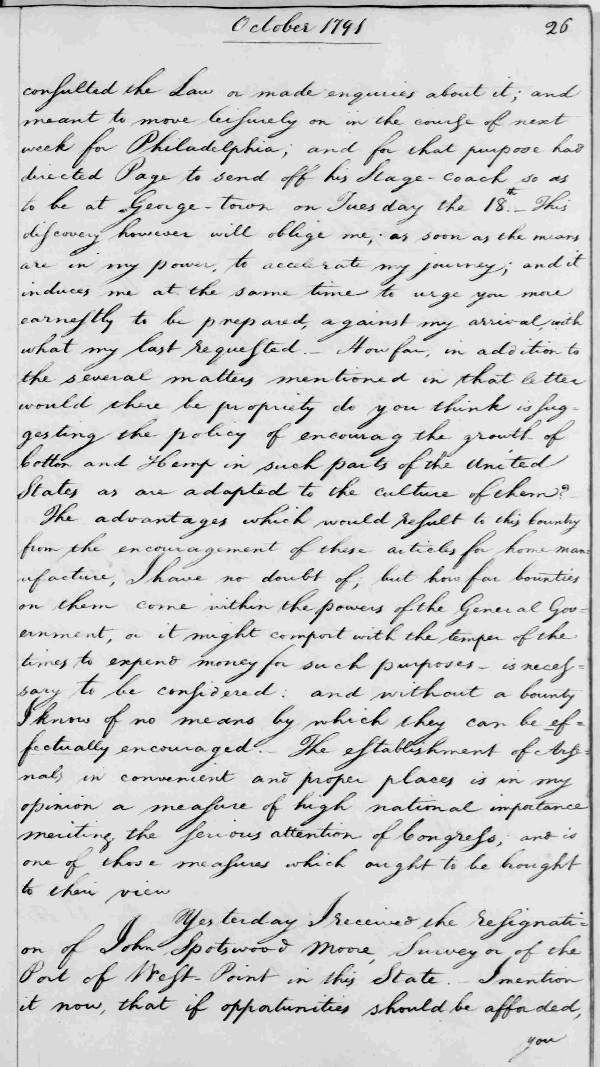 October 1791
26
consulted the Law or made enquiries about it; and
meant to move leisurely on in the course of next
week for Philadelphia; and for that purpose had
directed Page to send off his Stage-coach so as
to be at George-town on Tuesday the 18th.- This
discovery however will oblige me, as soon as the means
are in my power, to accelerate my journey; and it
induces me at the same time to urge you more
earnestly to be prepared, against my arrival, with
what my last requested.- How far, in addition to
the several matters mentioned in that letter
would there be propriety do you think is sug-
gesting the policy of encourag the growth of
Cotton and Hemp in such parts of the United
States as are adapted to the culture of them?
The advantages which would result to this Country
from the encouragement of these articles for home man=
ufacture, I have no doubt of; but how far bounties
on them come within the powers of the General Gov=
ernment, or it might comport with the temper of the
times to expend money for such purposes - is neces=
sary to be considered: and without a bounty
I know of no means by which they can be ef=
fectually encouraged.- The establishment of Arse-
nals in convenient and proper places is in my
opinion a measure of high national importance
meriting the serious attention of Congress; and is
one of those measures which ought to be brought
to their view
Yesterday I received the resignati=
on of John Spotswood Moore, Surveyor of the
Port of West-Point in this State.- I mention
it now, that if opportunities should be afforded,
you